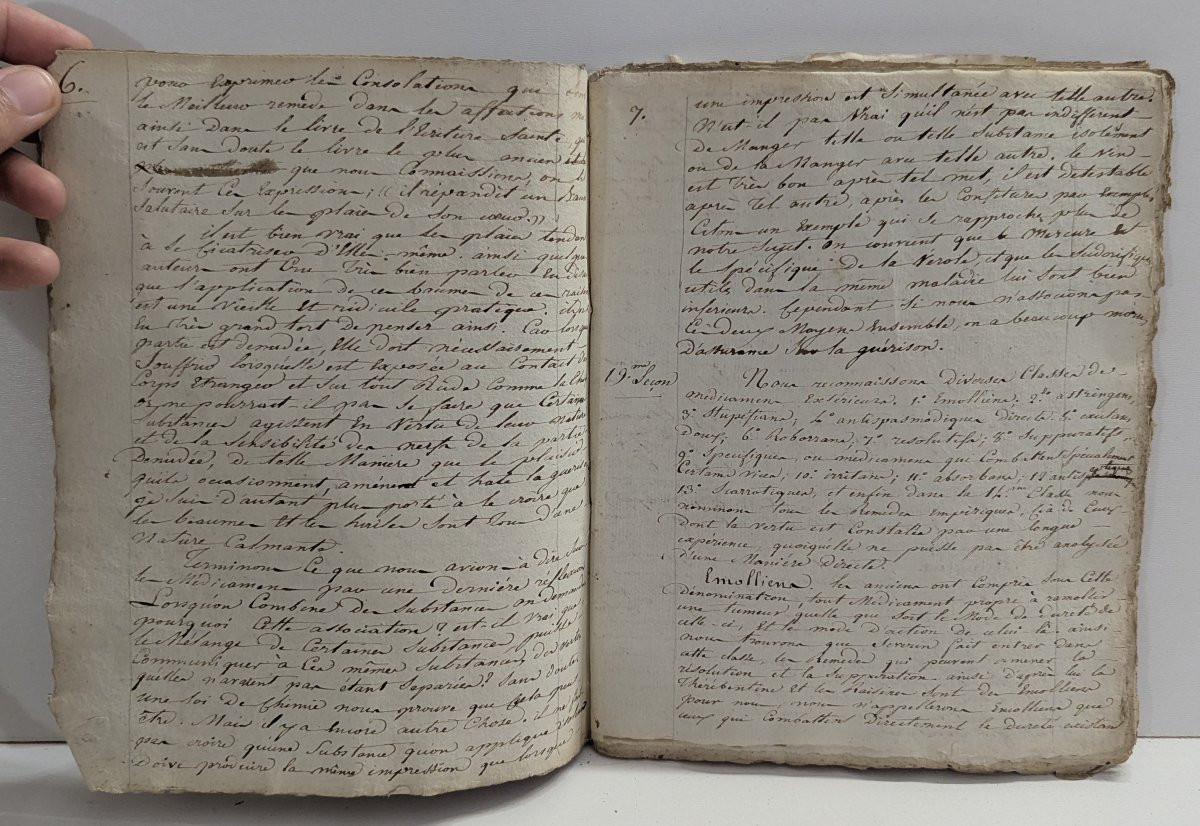 6.
vous Exprimer les Consolations que
le Meilleur remede dans les affections
ainsi Dans le livre de l'Ecriture Sainte, qui
est Sans doute le livre le plus ancien
que nous Connaissions, on
Souvent Ces Expressions; "il répandit un
Salutaire Sur les plaies de Son coeur."
il est bien vrai que les plaies tendent
à Se Cicatriser d'Elles-même. ainsi que
auteurs ont Cru Très bien parler En
que l'application de ces beaumes de ces
est une Vieille Et ridicule pratique. ils
Eu très grand tort de penser ainsi. Car lorsque
partie est denudée, Elle doit nécessairement
Souffrir lorsqu'elle est Exposée au Contact de
Corps Etranger et Sur tout Rude Comme
or ne pourrait-il pas se faire que Certaines
Substances agissent En Vertu de leur nature
et de la Sensibilité des nerfs de la partie
Denudée, de telle Manière que le plaisir
quils occasionnent, amènent et hate la guerison
Je Suis d'autant plus porté à le croire que
les beaumes Et les huiles Sont tous d'une
Nature Calmante.
Terminons Ce que nous avions à dire Sur
les Médicamens par une derniére réflexion
Lorsqu'on Combine des Substances on demande
pourquoi Cette association? est-il vrai que
le Mélange de Certaines Substances puisse
Communiquer à Ces mêmes Substances des vertus
quelles n'avaient pas étant Separées? Sans doute
une loi de Chimie nous prouve que Cela peut
être. Mais il y a Encore autre Chose. il ne faut
pas croire qu'une Substance quon applique
Doive produire la même impression que lorsque
7.
une impression est Simultanée avec telle autre.
N'est-il pas Vrai qu'il n'est pas indifferent
de Manger telle ou telle Substance isolement
ou de la Manger avec telle autre. le Vin
est Très bon après tel met, il est détestable
après tel autre, après les Confitures par Exemple,
Citons un Exemple qui Se rapproche plus de
notre Sujet. On convient que le Mercure Est
le Spécifique de la Verole, et que les Sudorifiques
utiles dans la même maladie lui Sont bien
inferieurs. Cependant Si nous n'associons pas
Ces deux Moyens Ensemble, on a beaucoup moins
D'assurance Sur la guérison.
19.me Leçon
Nous reconnaissons Diverses Classes de
médicamens Extérieurs. 1º Emolliens. 2º astringens,
3º Stupéfians, 4º antispasmodiques directs. 5º excitans
Doux, 6º Roborans, 7º resolutifs; 8º Suppuratifs,
9º Specifiques, ou médicamens qui Combattent Specialement
Certains Vices, 10º irritans; 11º absorbans; 12º
13º Scarrotiques, et enfin dans la 14.me Classe nous
réunirons tous les Remedes Empiriques, C. à d. Ceux
dont la Vertu est Constatée par une longue
expérience, quoiquelle ne puisse pas être analysée
D'une Manière Directe.
Emolliens les anciens ont Compris Sous Cette
Dénomination, tout Médicament propre à ramollir
une tumeur quelle que Soit le Mode de dureté de
celle-ci, Et le mode d'action de celui-là ainsi
nous trouvons que Severin fait entrer dans
cette classe, les Remedes qui peuvent amener la
résolution et la Suppuration. ainsi d'après lui la
Thérébentine Et les Raisins Sont des Emolliens
pour nous, nous n'appellerons Emolliens que
ceux qui Combattent Directement la Dureté